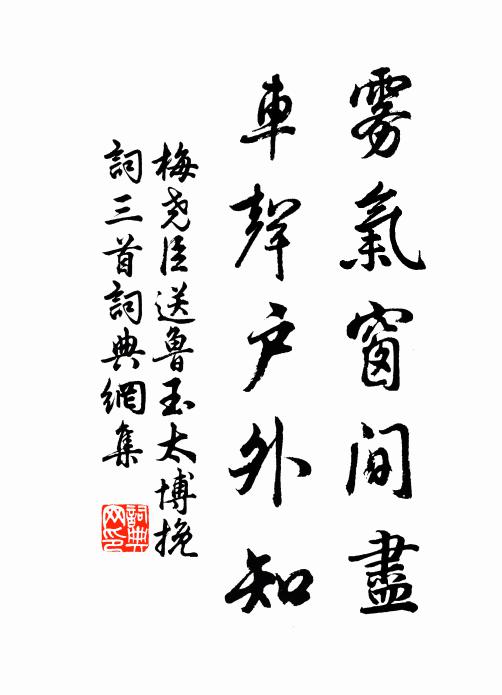 雾氣窗間盡
車聲户外知
梅尧臣送魯玉太博挽
詞三首詞典網集
詞典网印